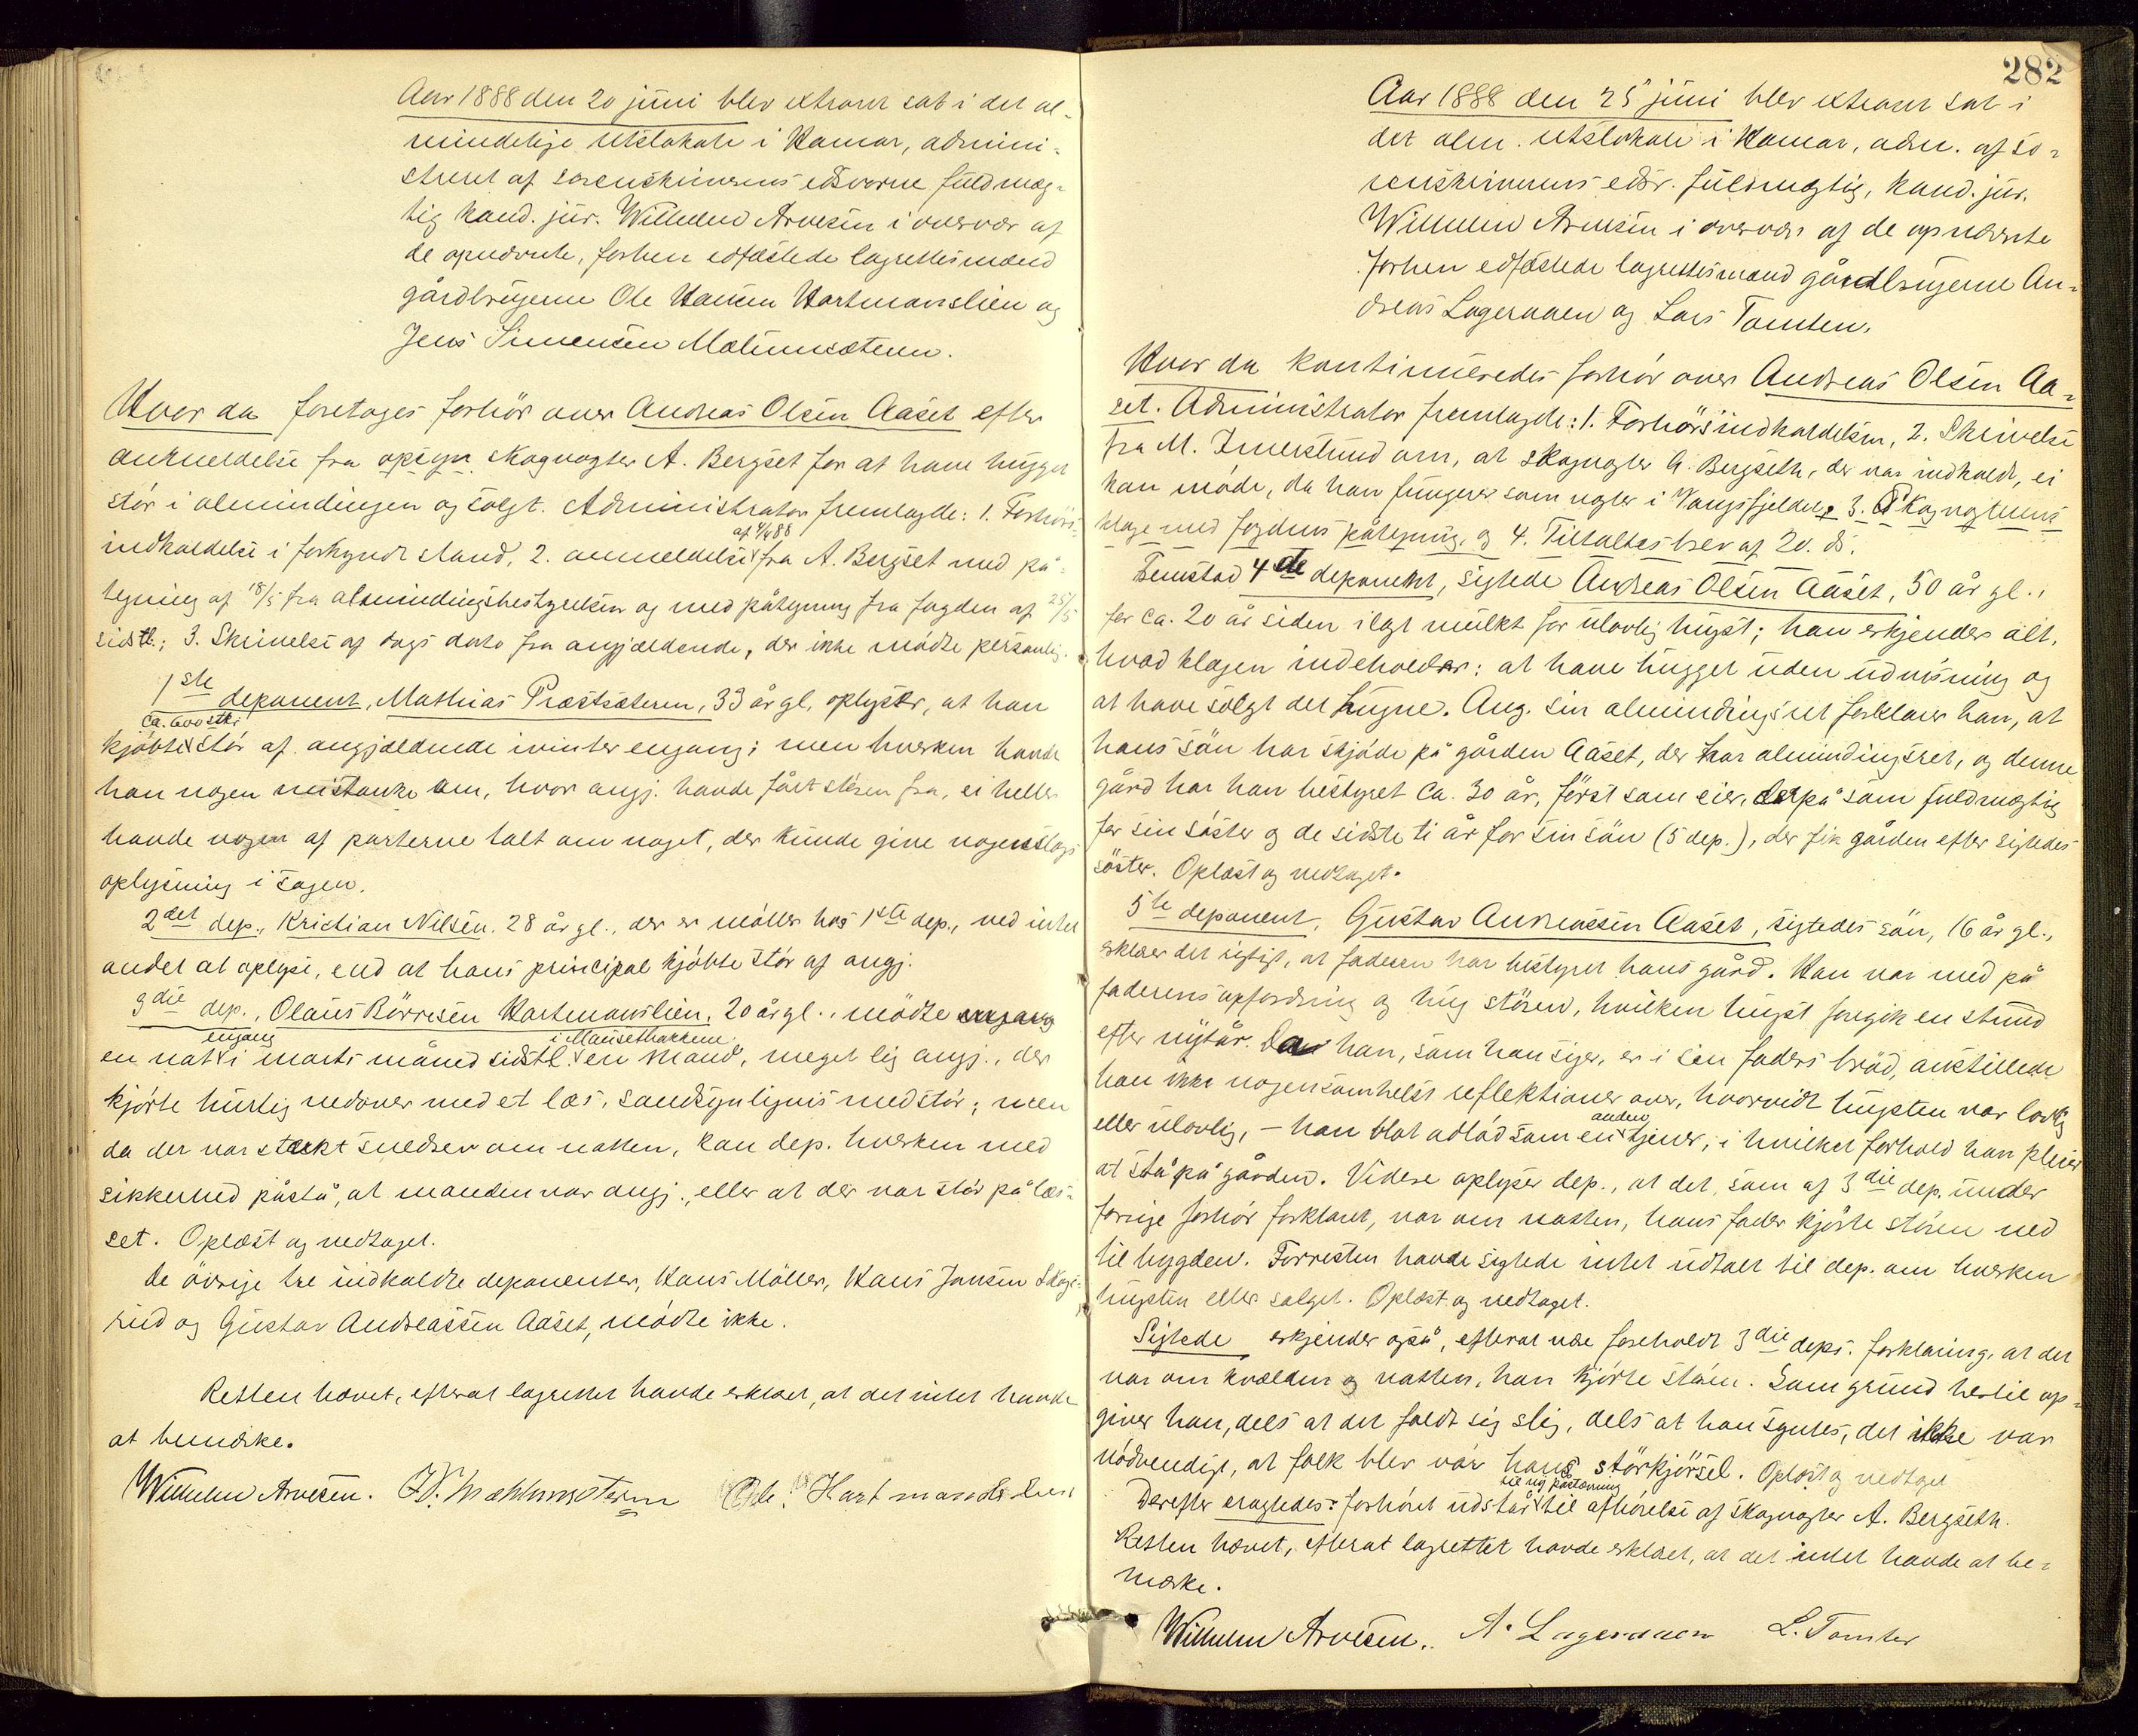 Aar 1888 den 20 juni blev extraret sat i det al-
mindelige retslokale i Hamar, admini-
streret af sorenskriverens edsvorne fuldmæg-
tig kand. jur. Wilhelm Arvesen i overvær af
de opnævnte, forhen edfæstede lagrettesmænd
gårdbrugerne Ole Hansen Hartmanslien og
Jens Simensen Mælumsæteren.
Hvor da foretoges forhör over Andreas Olsen Aaset efter
anmeldelse fra opsyn skogvogter A. Bergset for at have hugget
stör i almindingen og solgt. Administrator fremlagde: 1. Forhörs-
af 4/488
indkaldelse i forkyndt stand, 2. anmeldelse fra A. Bergset med på-
tegning af 18/5 fra almindingsbestyrelsen og med påtegning fra fogden af 25/5
sidstl.; 3. Skrivelse af dags dato fra angjældende, der ikke mödte personlig.
1ste deponent, Mathias Præstsæteren, 33 år gl, oplyser, at han
ca. 600 stkr
kjöbte stör af angjældende ivinter engang; men hverken havde
han nogen mistanke om, hvor angj. havde fået stören fra, ei heller
havde nogen af parterne talt om noget, der kunde give nogenslags
oplysning i sagen.
2det dep., Kristian Nilsen. 28 år gl., der er möller hos 1ste dep., ved intet
andet at oplyse, end at hans principal kjöbte stör af angj.
3die dep., Olaus Börresen Hartmanslien, 20 år gl., mödte engang
engang i Mausetbakkene
en nat i marts måned sidstl. en mand, meget lig angj., der
kjörte hurtig nedover med et læs, sandsynligvis med stör; men
da der var stærkt snedrev om natten, kan dep. hverken med
sikkerhed påstå, at manden var angj., eller at der var stör på læs-
set. Oplæst og vedtaget.
De övrige tre indkaldte deponenter, Hans Möller, Hans Jansen Skogs-
rud og Gustav Andreassen Aaset, mödte ikke.
Retten hævet, efterat lagrettet havde erklæret, at det intet havde
at bemærke.
Wilhelm Arvesen. J.S. Mæhlumsætern Ole. H Hartmandslien
282
Aar 1888 den 25 juni blev extraret sat i
det alm. retslokale i Hamar, adm. af so-
renskriverens edsv. fuldmægtig, kand. jur.
Wilhelm Arvesen i overvær af de opnævnte
forhen edfæstede lagrettesmænd gårdbrugerne An-
dreas Lageraaen og Lars Tomten.
Hvor da kontinueredes forhör over Andreas Olsen Aa-
set. Administrator fremlagde: 1. Forhörsindkaldelsen, 2. Skrivelse
fra M. Imerslund om, at skogvogter A. Bergseth, der var indkaldt, ei
kan möde, da han fungerer som vogter i Vangsfjeldet, 3. Skogvogterens
klage med fogdens påtegning, og 4. Tiltaltes brev af 20. ds.
Fremstod 4de deponent, sigtede Andreas Olsen Aaset, 50 år gl.,
for ca. 20 år siden ilagt mulkt for ulovlig hugst; han erkjender alt,
hvad klagen indeholder: at have hugget uden udvisning og
at have solgt det hugne. Ang. sin almindingsret forklarer han, at
hans sön har skjöde på gården Aaset, der har almindingsret, og denne
gård har han bestyret ca. 30 år, först som eier, derpå som fuldmægtig
for sin söster og de sidste ti år for sin sön (5 dep.), der fik gården efter sigtedes
söster. Oplæst og vedtaget.
5te deponent, Gustav Andreassen Aaset, sigtedes sön, 16 år gl.,
erklærer det rigtigt, at faderen har bestyret hans gård. Han var med på
faderens opfordring og hug stören, hvilken hugst foregik en stund
efter nytår. Da han, som han siger, er i sin faders bröd, anstillede
han ikke nogensomhelst reflektioner over, hvorvidt hugsten var lovlig
anden
eller ulovlig, – han blot adlöd som en tjener, i hvilket forhold han pleier
at stå på gården. Videre oplyser dep., at det, som af 3die dep. under
forrige forhör forklaret, var om natten, hans fader kjörte stören ned
til bygden. Forresten havde sigtede intet udtalt til dep. om hverken
hugsten eller salget. Oplæst og vedtaget.
Sigtede erkjender også, efterat være foreholdt 3die deps. forklaring, at det
var om kvælden og natten, han kjörte stören. Som grund hertil op-
giver han, dels at det faldt sig slig, dels at han syntes, det ikke var
nödvendigt, at folk blev vár hans störkjörsel. Oplæst og vedtaget
til ny påstævning
Derefter eragtedes: forhöret udstår til afhörelse af skogvogter A. Bergseth.
Retten hævet, efterat lagrettet havde erklæret, at det intet havde at be-
mærke.
Wilhelm Arvesen. A. Lageraaen L. Tomter